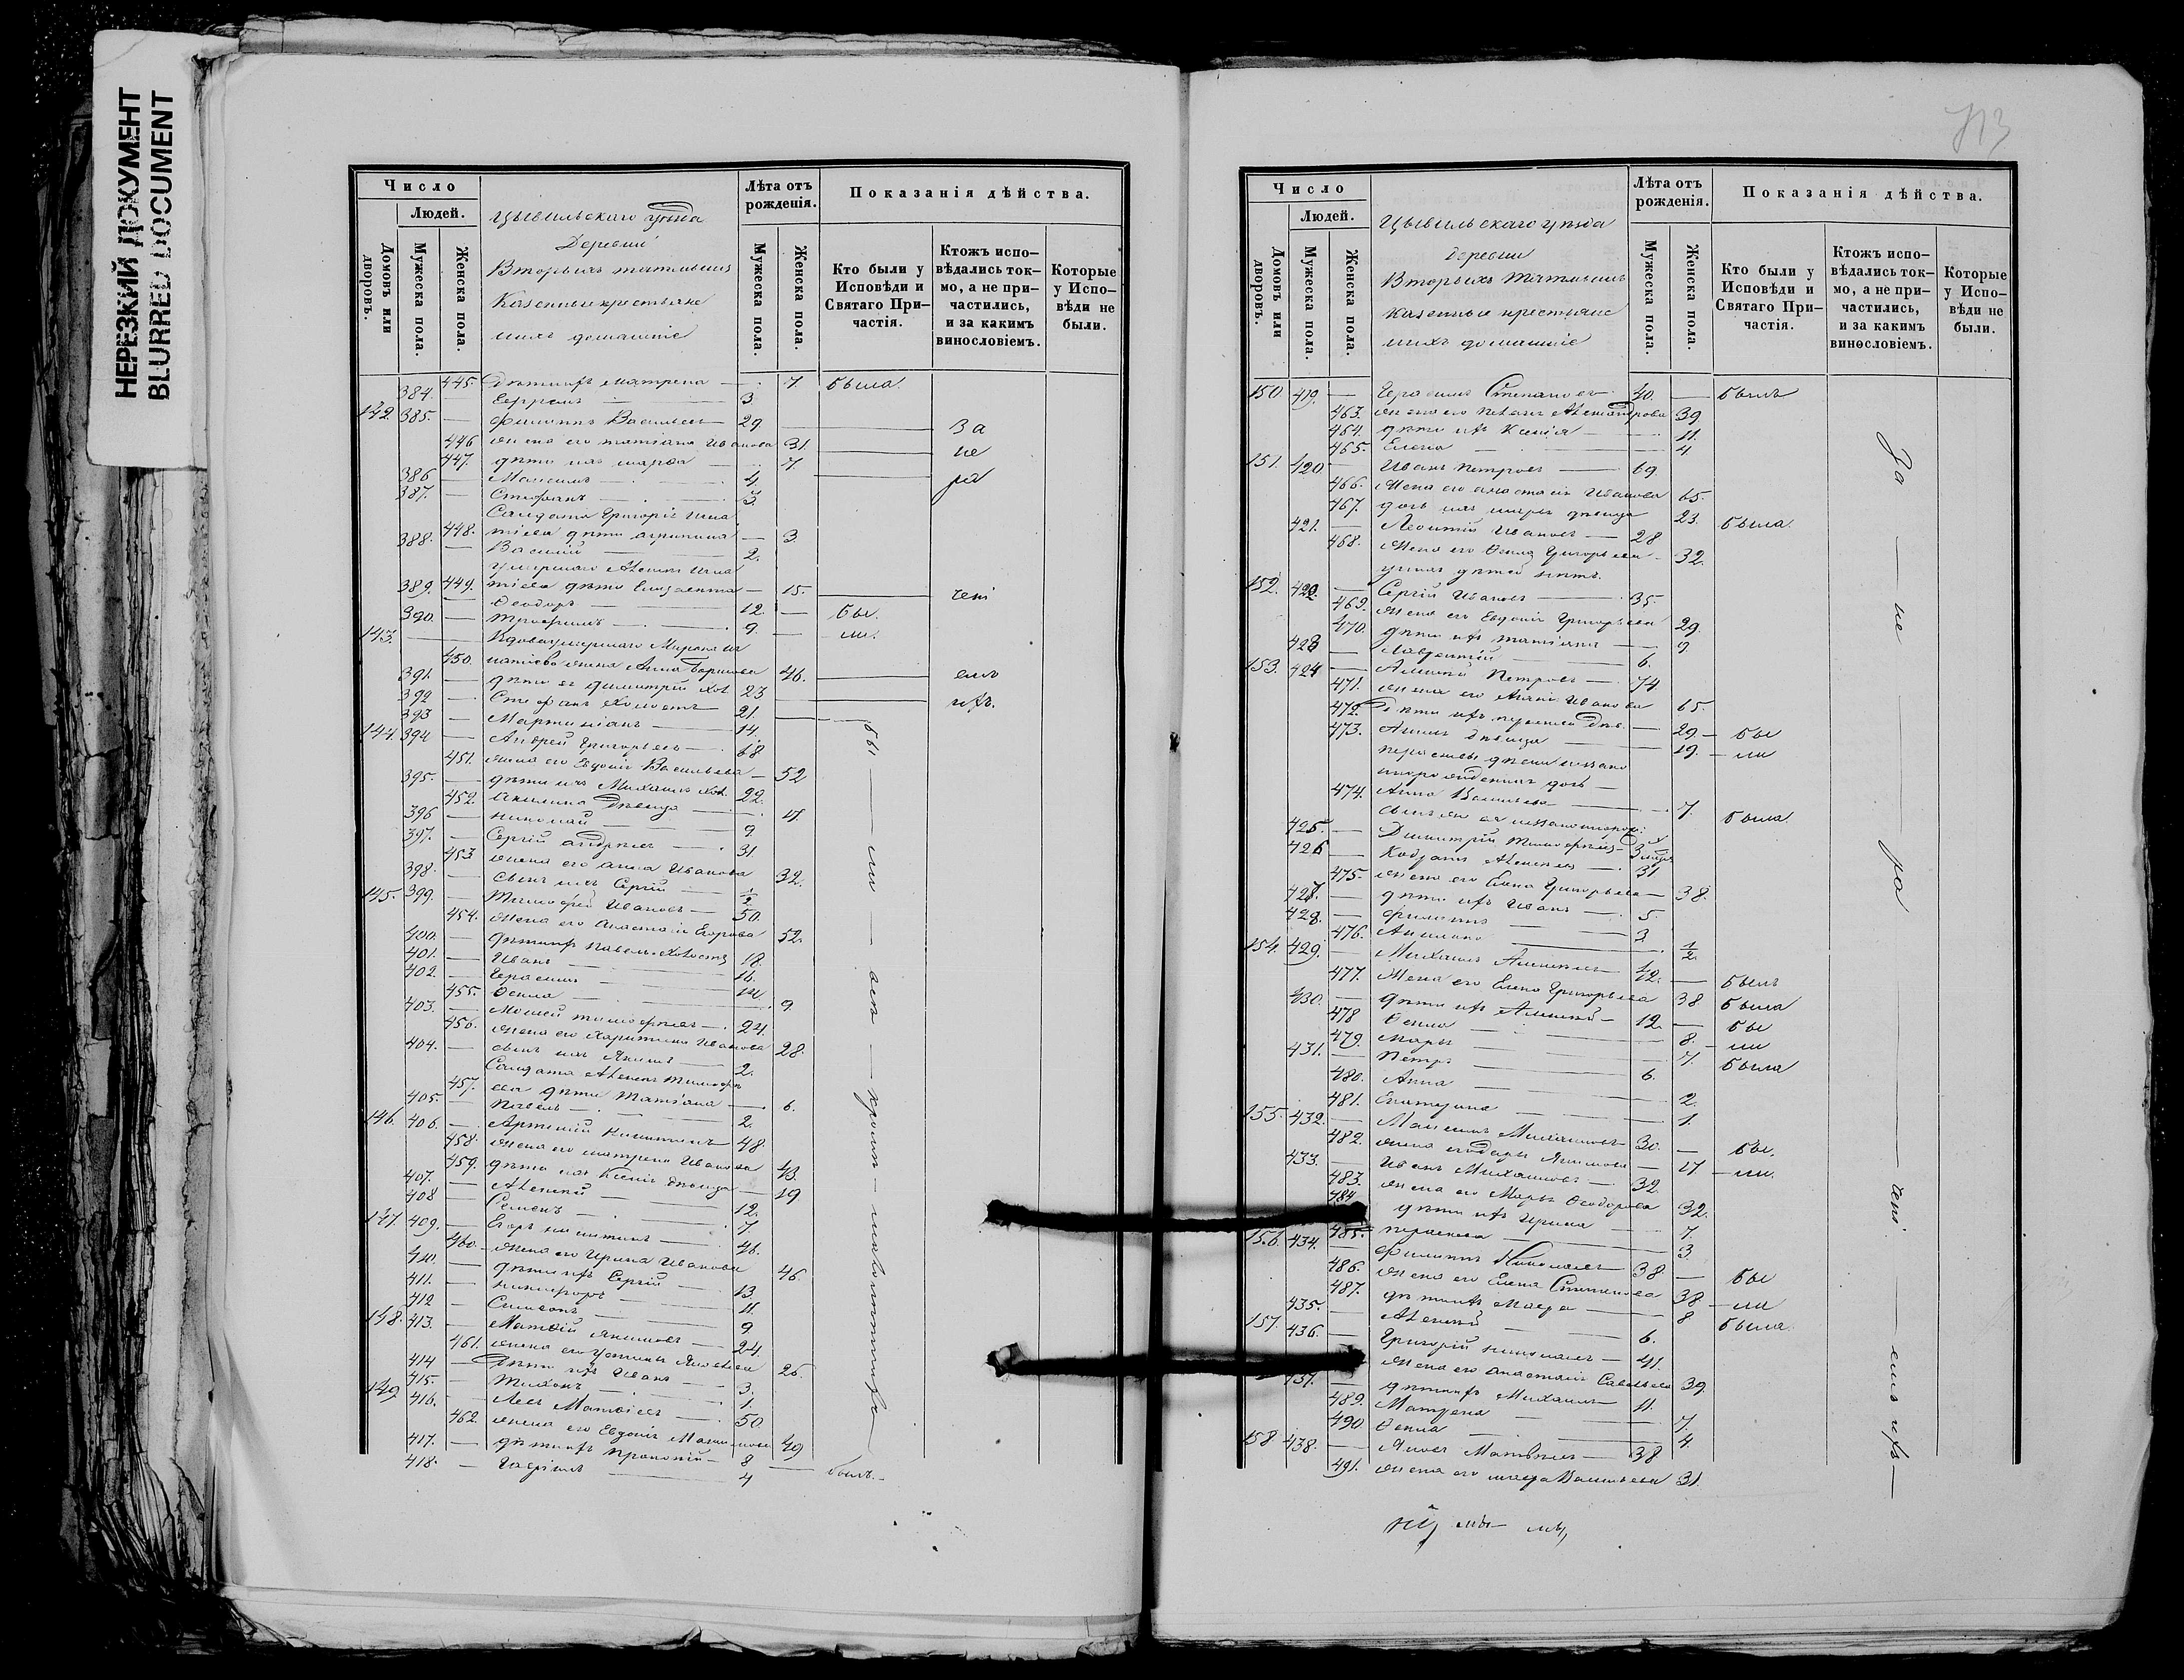 НЕРЕЗКИЙ ДОКУМЕНТ
BLURRED DOCUMENT
Число
Людей.
Домовъ или дворовъ.
Мужеска пола.
Женска пола.
Цывильскаго уѣзда
Деревни
Вторыхъ
Казенные крестьяне
ихъ домашніе
Лѣта отъ рожденія.
Мужеска пола.
Женска пола.
Показанія дѣйства.
Кто были у Исповѣди и Святаго Причастія.
Ктожъ исповѣдались токмо, а не причастились, и за какимъ винословіемъ.
Которые у Исповѣди не были.
445. Дѣти ихъ Матрена 7. была
384. 3
142. 385. Филиппъ Васильевъ 29 за
446 жена его Татіана Иванова 31. не
447. дѣти ихъ Марѳа 7.
386 Максимъ 4. ра
387. Стефанъ 3.
Солдата Григорія Игна
448. тіева дѣти Агрипина 3.
388. Василій 2.
умершаго Алексея Игна
449. тіева дѣти Елизавета 15. чені
389. Ѳеодоръ 12. бы
390. Трофимъ 9. ли.
143. Вдова умершаго Мирона Иг
450. натіева жена Анна Борисова 46. емъ
391. дѣти ея Димитрій хол. 23 ихъ.
392 Стефанъ холостъ 21.
393 Мартиніанъ 14.
144. 394 Андрей Григорьевъ 68
451. жена его Евдокія Васильева 52
395. дѣти ихъ Михаилъ хол. 22.
452. Акилина дѣвица 17
396 Николай 9.
397. Сергій Андреевъ 31.
453 жена его Анна Иванова 32.
398. сынъ ихъ Сергій 1/2.
145. 399. Тимофей Ивановъ 50.
454. жена его Анастасія Егорова 52.
400. дѣти ихъ Павелъ холостъ 18.
401. Иванъ 16.
402. Герасимъ 14.
455. Ѳекла 9.
403. Моисей Тимофеевъ 24.
456. жена его Харитина Иванова 28.
404. сынъ ихъ Якимъ 2.
Солдата Алексея Тимофе
457. ева дѣти Татіана 6.
405. Павелъ 2.
146. 406. Артемій Никитинъ 48.
458. жена его Матрена Иванова 43.
459. дѣти ихъ Ксенія дѣвица 19
407. Алексей 12.
408 Семенъ 7
147. 409. Егоръ Никитинъ 46.
460. жена его Ирина Иванова 46.
410. дѣти ихъ Сергій 13.
411. Никифоръ 11.
412 Симеонъ 9
148. 413. Матвій Якимовъ 24.
461. жена его Устинья Яковлева 26.
414 дѣти ихъ Иванъ 3.
415. Тихонъ 1.
149. 416. Левъ Матвіевъ 50
462. жена его Евдокія Максимова 49
417. дѣти ихъ Прокопій 8 былъ
418. Гавріилъ 4
бы ли всѣ кромѣ малолѣтнихъ
713
Число
Людей.
Домовъ или дворовъ.
Мужеска пола.
Женска пола.
Цывильскаго уѣзда
Деревни
Вторыхъ
Казенные крестьяне
ихъ домашніе
Лѣта отъ рожденія.
Мужеска пола.
Женска пола.
Показанія дѣйства.
Кто были у Исповѣди и Святаго Причастія.
Ктожъ исповѣдались токмо, а не причастились, и за какимъ винословіемъ.
Которые у Исповѣди не были.
150 419. Герасимъ Степановъ 40. былъ
463. жена его Пелагея Александрова 39
464. дѣти ихъ Ксенія 11.
465. Елена 4
151. 420 Иванъ Петровъ 69
466. жена его Анастасія Иванова 65.
467. дочь ихъ Марья дѣвица 23. была
421. Леонтій Ивановъ 28
468. жена его Ѳекла Григорьева 32.
у нихъ дѣтей нетъ.
152. 422. Сергій Ивановъ 35.
469. жена его Евдокія Григорьева 29.
470. дѣти ихъ Татіана 9
423 Лаврентій 6.
153. 424 Алексей Петровъ 74.
471. жена его Агафія Иванова 65
472. Дѣти ихъ Парасковья дѣв. 29 бы
473. Анна дѣвица 19. ли
Парасковьи дѣвицы незако
норожденная дочь
474. Анна Васильева 7. была
сынъ же ея незаконорож:
425. Димитрій Тимофеевъ 3
426 Кодратъ Алексеевъ 31
475. жена его Елена Григорьева 38.
427. дѣти ихъ Иванъ 5.
428. Филиппъ 3
476. Акилина 1/2
154. 429. Михаилъ Алексеевъ 42. былъ
477. жена его Елена Григорьева 38 была
430. дѣти ихъ Алексей 12. бы
478 Ѳекла 8. ли
479. Марья 7. была
431. Петръ 6.
480. Анна 2.
481. Екатерина 1.
155. 432. Максимъ Михаиловъ 30. бы.
482. жена его Дарья Якимова 17 ли.
433. Иванъ Михаиловъ 32.
483. жена его Марья Ѳеодорова 32.
484 дѣти ихъ Ирина 7.
485. Парасковья 3
156. 434. Филиппъ Николаевъ 38 бы
486. жена его Елена Степанова 38 ли
487. дѣти ихъ Мавра 8 была
435. Алексей 6.
157. 436. Григорій Николаевъ 41.
жена его Анастасія Савельева 39.
437. дѣти ихъ Михаилъ 11.
489. Матрена 7.
490 Ѳекла 4.
158 438. Яковъ Матвеевъ 38
491. жена его Васильева 31.
За не ра чені емъ ихъ